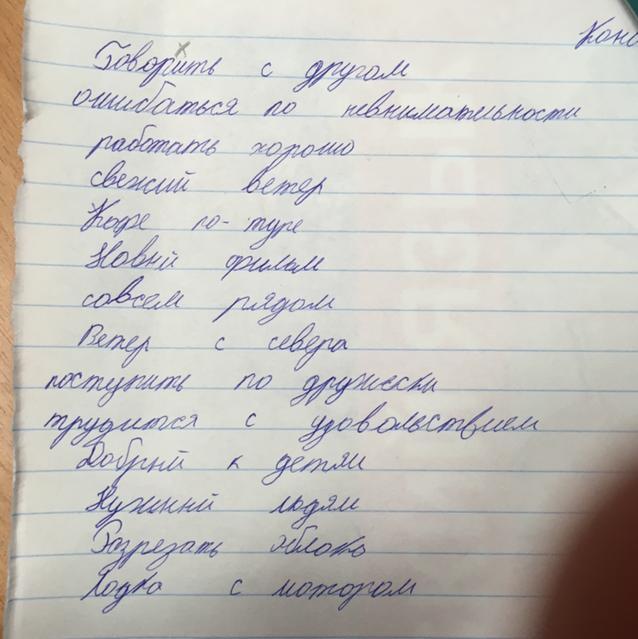 Конс
Говорить с другом
ошибаться по невнимательности
работать хорошо
свежий ветер
Кофе по-туре
Новый фильм
совсем рядом
Ветер с севера
поступить по дружески
трудится с удовольствием
Добрый к детям
Нужный людям
Разрезать яблоко
Лодка с мотором